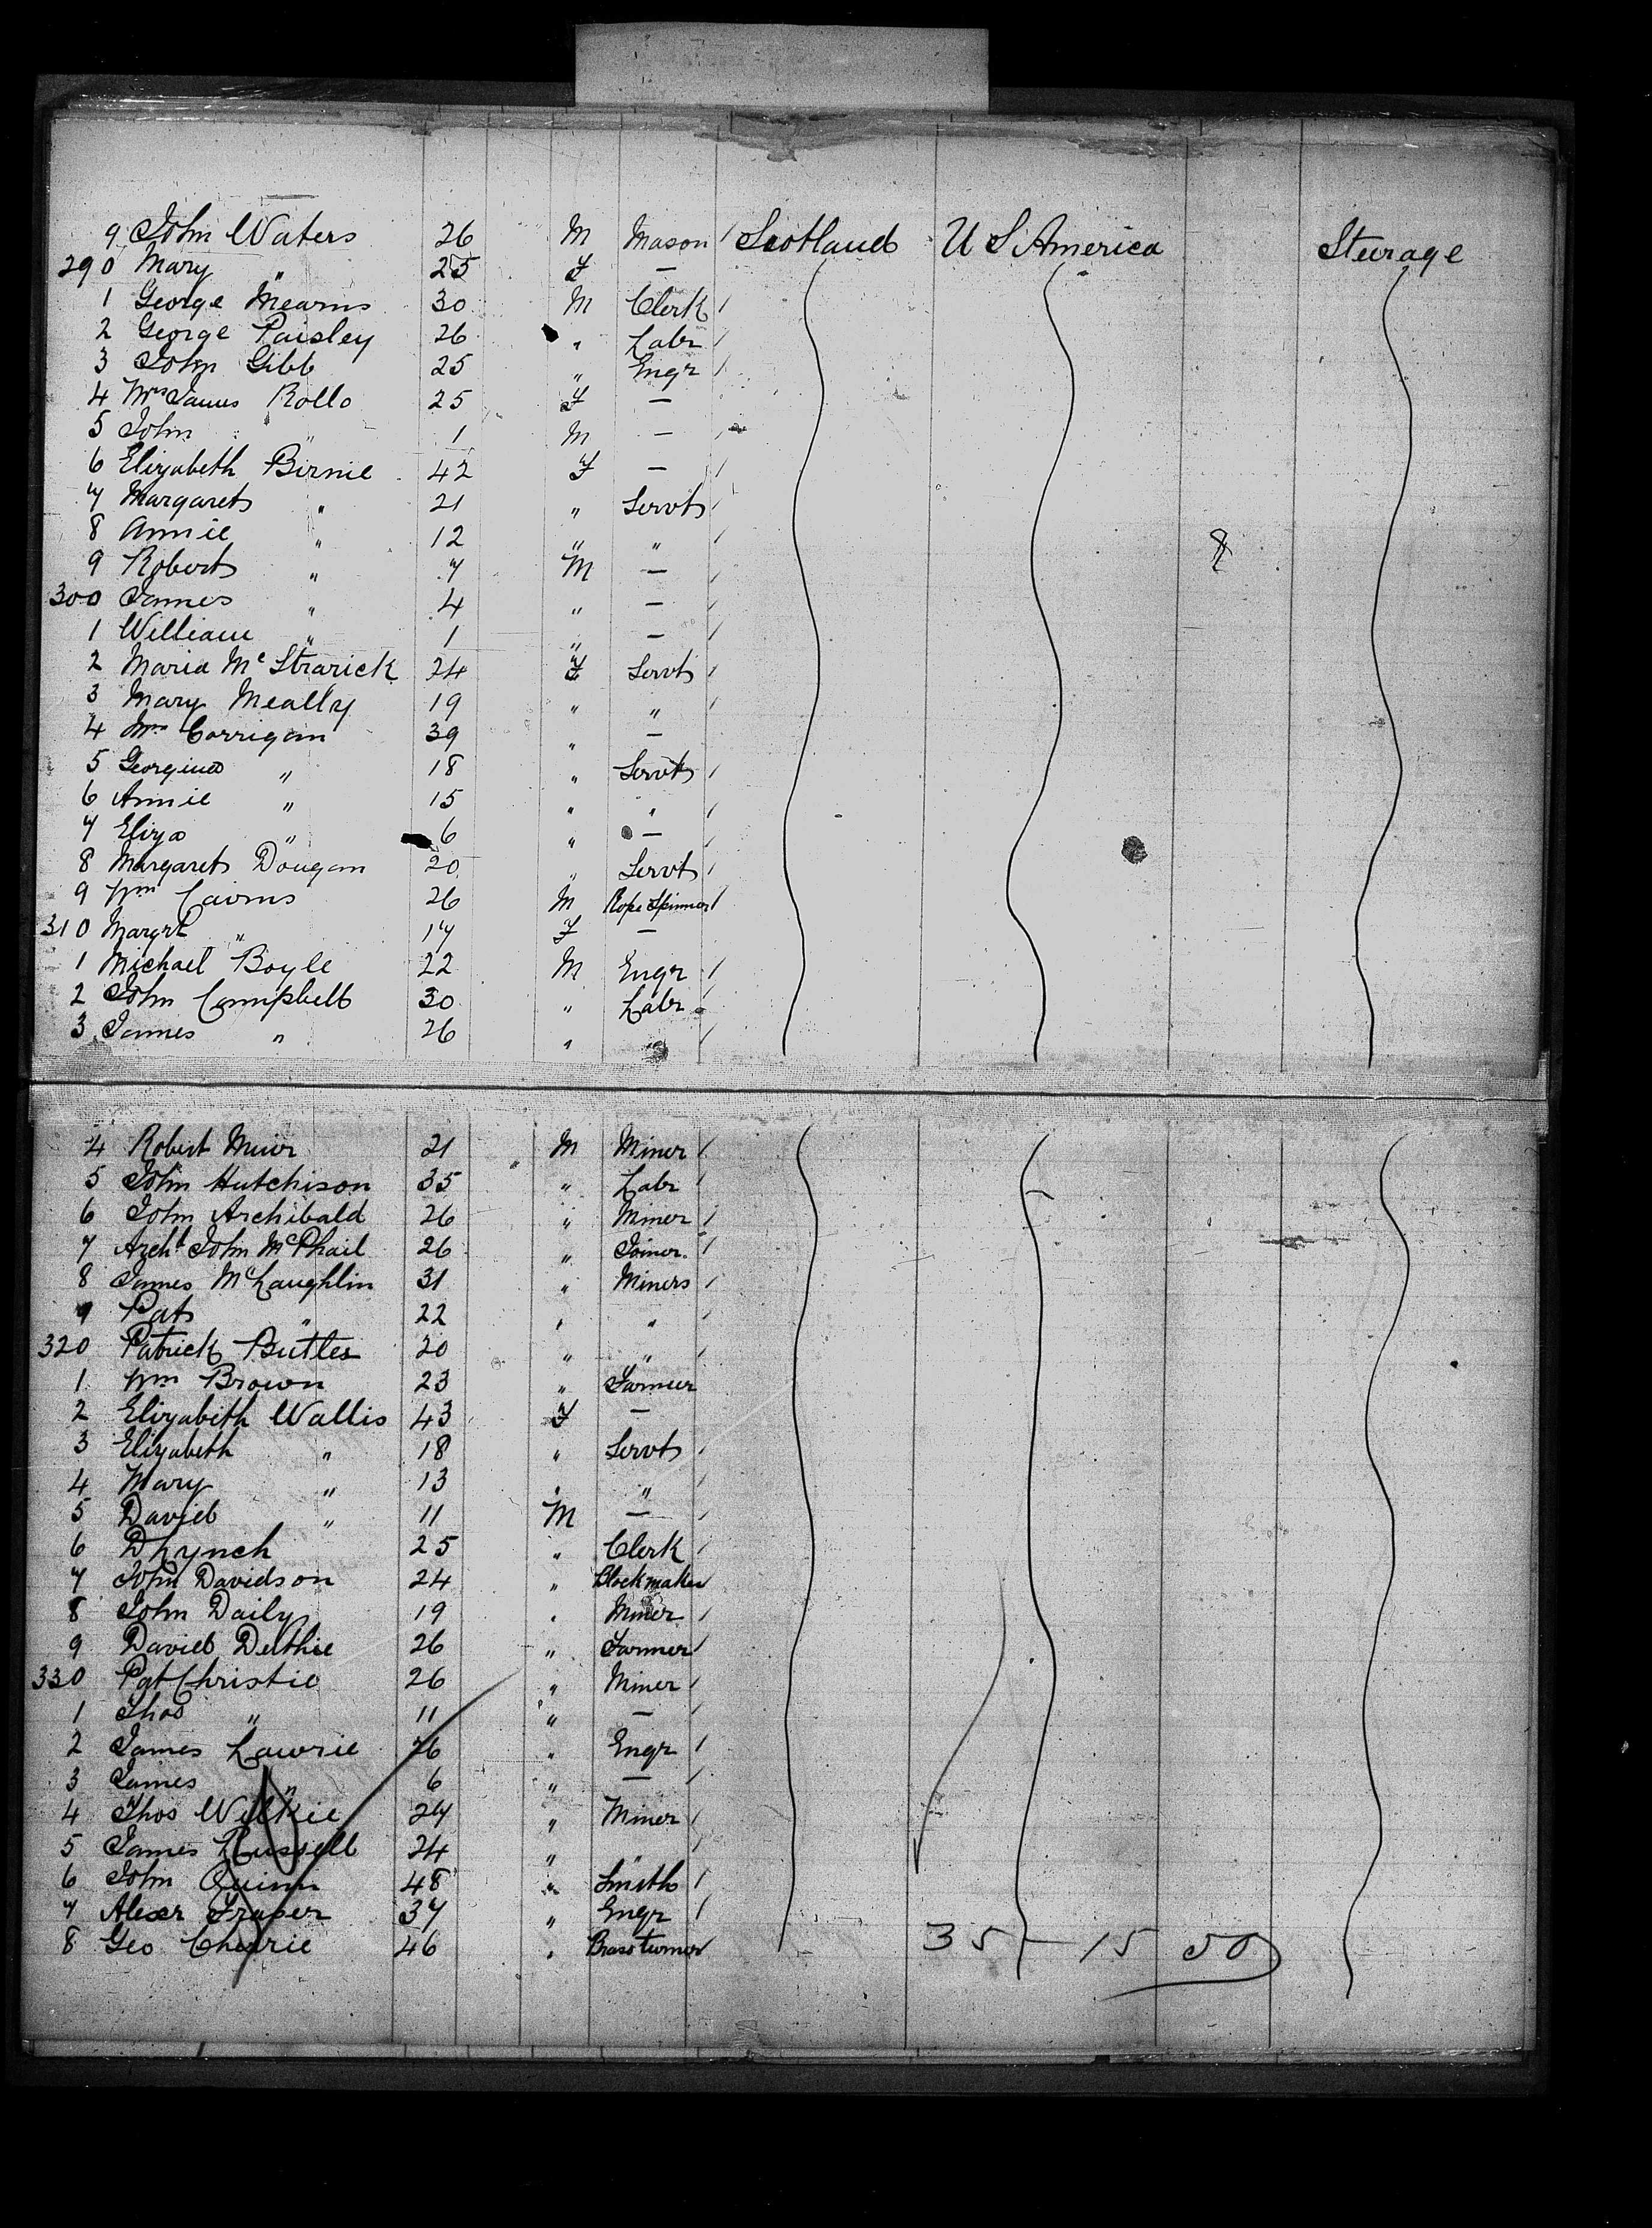 9 John Waters 26 M Mason / Scotland U S America Steerage
290 Mary " 25 F —
1 George Mearns 30 M Clerk /
2 George Paisley 26 " Labr /
3 John Gibb 25 " Engr /
4 Mrs James Rollo 25 F —
5 John " 1 M — /
6 Elizabeth Birnie 42 F — /
7 Margaret " 21 " Servt /
8 Annie " 12 " " / 8
9 Robert " 7 M — /
300 James " 4 " — /
1 William " 1 " — /
2 Maria Mc Strarick 24 F Servt /
3 Mary Meally 19 " " /
4 Mrs Corrigan 39 " —
5 Georgina " 18 " Servt /
6 Annie " 15 " " /
7 Eliza " 6 " — /
8 Margaret Dougan 20 " Servt /
9 Wm Cairns 26 M Rope Spinner /
310 Margrt " 17 F —
1 Michael Boyle 22 M Engr /
2 John Campbell 30 " Labr /
3 James " 26 " " /
4 Robert Muir 21 M Miner /
5 John Hutchison 35 " Labr /
6 John Archibald 26 " Miner /
7 Archd John McPhail 26 " Joiner /
8 James McLaughlin 31 " Miners /
9 Pat " 22 " " /
320 Patrick Butler 20 " " /
1 Wm Brown 23 " Farmer
2 Elizabeth Wallis 43 F —
3 Elizabeth " 18 " Servt /
4 Mary " 13 " " /
5 David " 11 M — /
6 D Lynch 25 " Clerk /
7 John Davidson 24 " Blockmaker
8 John Daily 19 " Miner /
9 David Duthie 26 " Farmer /
330 Pat Christie 26 " Miner /
1 Thos " 11 " — /
2 James Lawrie 26 " Engr /
3 James " 6 " — /
4 Thos Wilkie 27 " Miner /
5 James Russell 24 " " /
6 John Quinn 48 " Smith /
7 Alexr Fraser 37 " Engr /
8 Geo Cherrie 46 " Brass turner 35 — 15 50